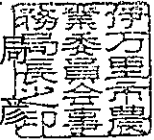 伊万里市農
業委員会事
務局長之印
周彦